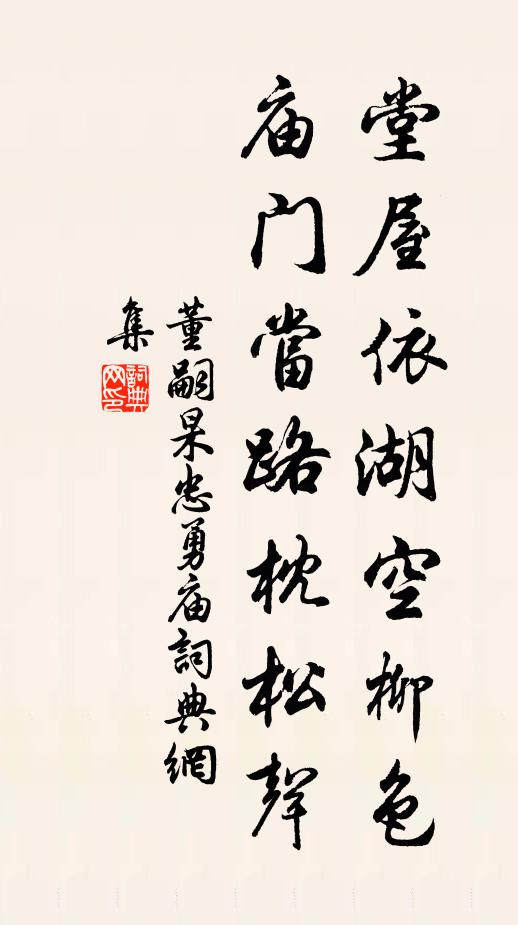 堂屋依湖空柳色
庙門當路枕松聲
董嗣杲忠勇庙詞典網
集
詞典网印